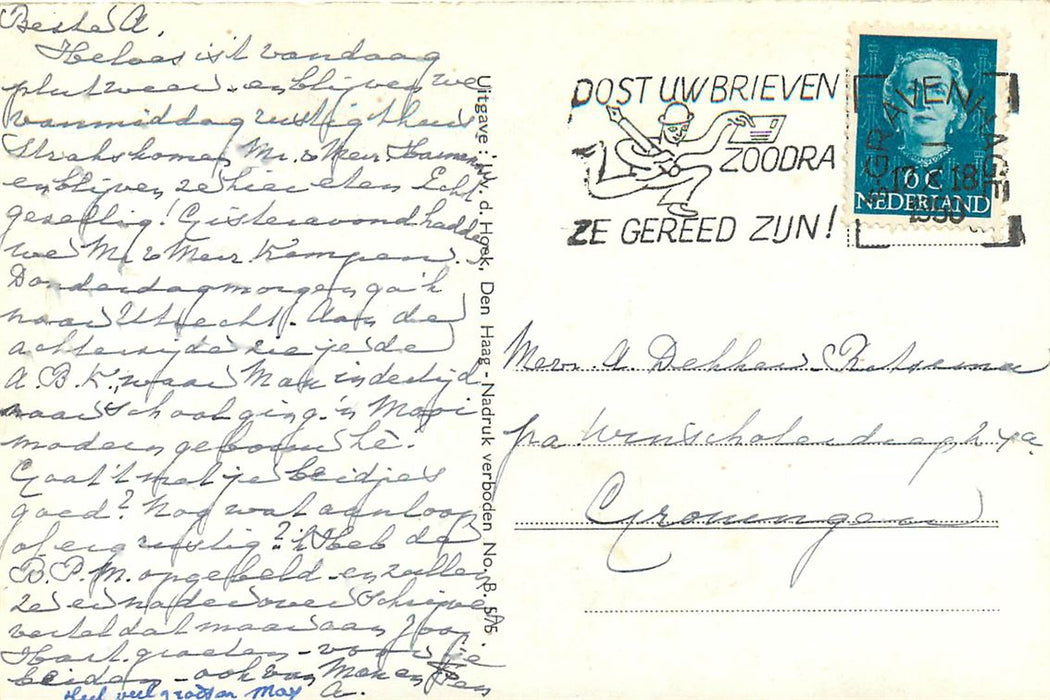 Beste A.
Helaas is 't vandaag
plut weer en blijven we
vanmiddag rustig thuis
Straks komen Mr. & Mevr.
en blijven ze hier eten Echt
gezellig! Gisteravond hadden
we Mr & Mevr. Kampen.
Donderdagmorgen ga ik
naar Utrecht. Aan de
achterzijde zie je de
A.B.K., waar Max indertijd
naar school ging. 'n Mooi
modern gebouw hè.
Gaat 't met je beidjes
goed? Nog wat aanloop
of erg rustig? 'k Heb de
B.P.M. opgebeld en zullen
ze er nader over schrijven
vertel dat maar aan Joop.
Hart. groeten voor je
beiden - ook van Max en
A.
Heel veel groeten Max
Uitgave: N.V. v. d. Hoek, Den Haag - Nadruk verboden No. B. 575
POST UW BRIEVEN
ZOODRA
ZE GEREED ZIJN!
'S GRAVENHAGE
17 X 18
1950
10 C
NEDERLAND
Mevr. A Dekker
pa Winschoterdiep
Groningen